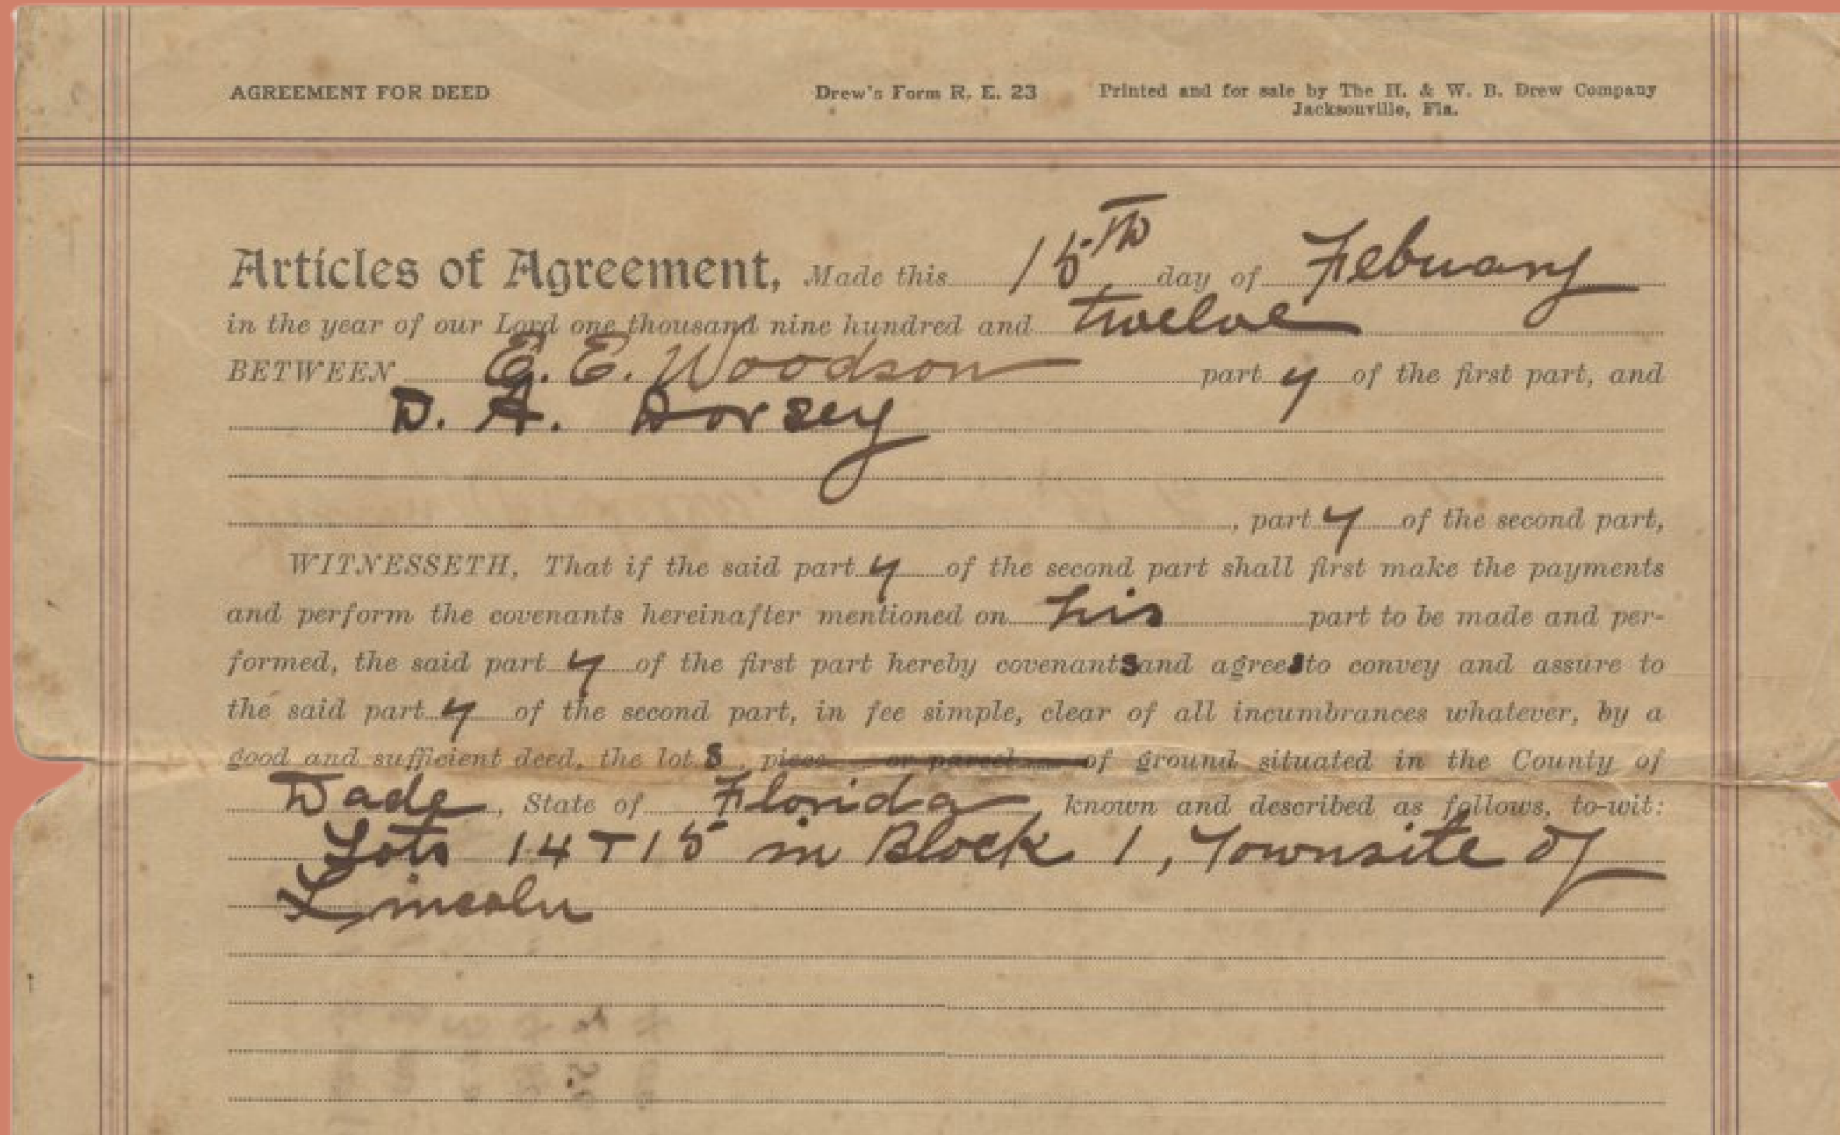 AGREEMENT FOR DEED Drew's Form R. E. 23 Printed and for sale by The H. & W. B. Drew Company
Jacksonville, Fla.
Articles of Agreement, Made this 15Th day of Febuary
in the year of our Lord one thousand nine hundred and twelve
BETWEEN E. E. Woodson part y of the first part, and
D. A. Dorsey
, part y of the second part,
WITNESSETH, That if the said part y of the second part shall first make the payments
and perform the covenants hereinafter mentioned on his part to be made and per-
formed, the said part y of the first part hereby covenants and agrees to convey and assure to
the said part y of the second part, in fee simple, clear of all incumbrances whatever, by a
good and sufficient deed, the lot s, piece or parcel of ground situated in the County of
Dade, State of Florida, known and described as follows, to-wit:
Lots 14 + 15 in Block 1, Townsite of
Lincoln